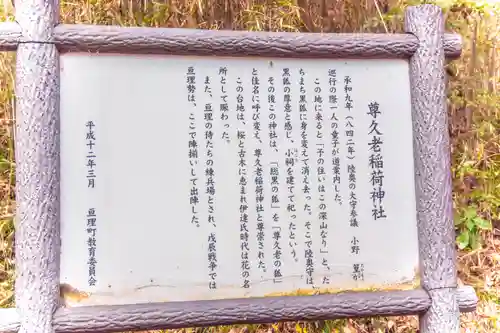 尊久老稲荷神社
承和九年(八四二年)陸奥の太守参議 小野 篁が
巡行の際一人の童子が道案内した。
この地に来ると「予の住いはこの深山なり」と、た
ちまち黒狐に身を変えて消え去った。そこで陸奥守は、
黒狐の尊意と感じ、小祠を建てて祀ったという。
その後この神社は、「総黒の狐」を「尊久老の狐」
と佳名に呼び変え、尊久老稲荷神社と尊崇された。
この台地は、桜と古木に恵まれ伊達氏時代は花の名
所として賑わった。
また、亘理の侍たちの練兵場とされ、戊辰戦争では
亘理勢は、ここで陣揃いして出陣した。
平成十二年三月 亘理町教育委員会